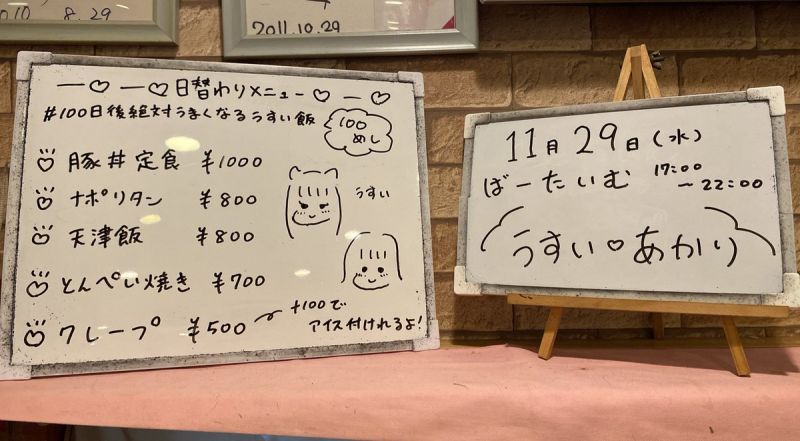 2010 8.29
2011.10.29
日替わりメニュー
#100日後絶対うまくなるうすい飯
100
めし
豚丼定食 ¥1000
ナポリタン ¥800
天津飯 ¥800
とんぺい焼き ¥700
クレープ ¥500
+100で
アイス付けれるよ!
うすい
11月29日(水)
ばーたいむ 17:00
~22:00
うすい♡あかり